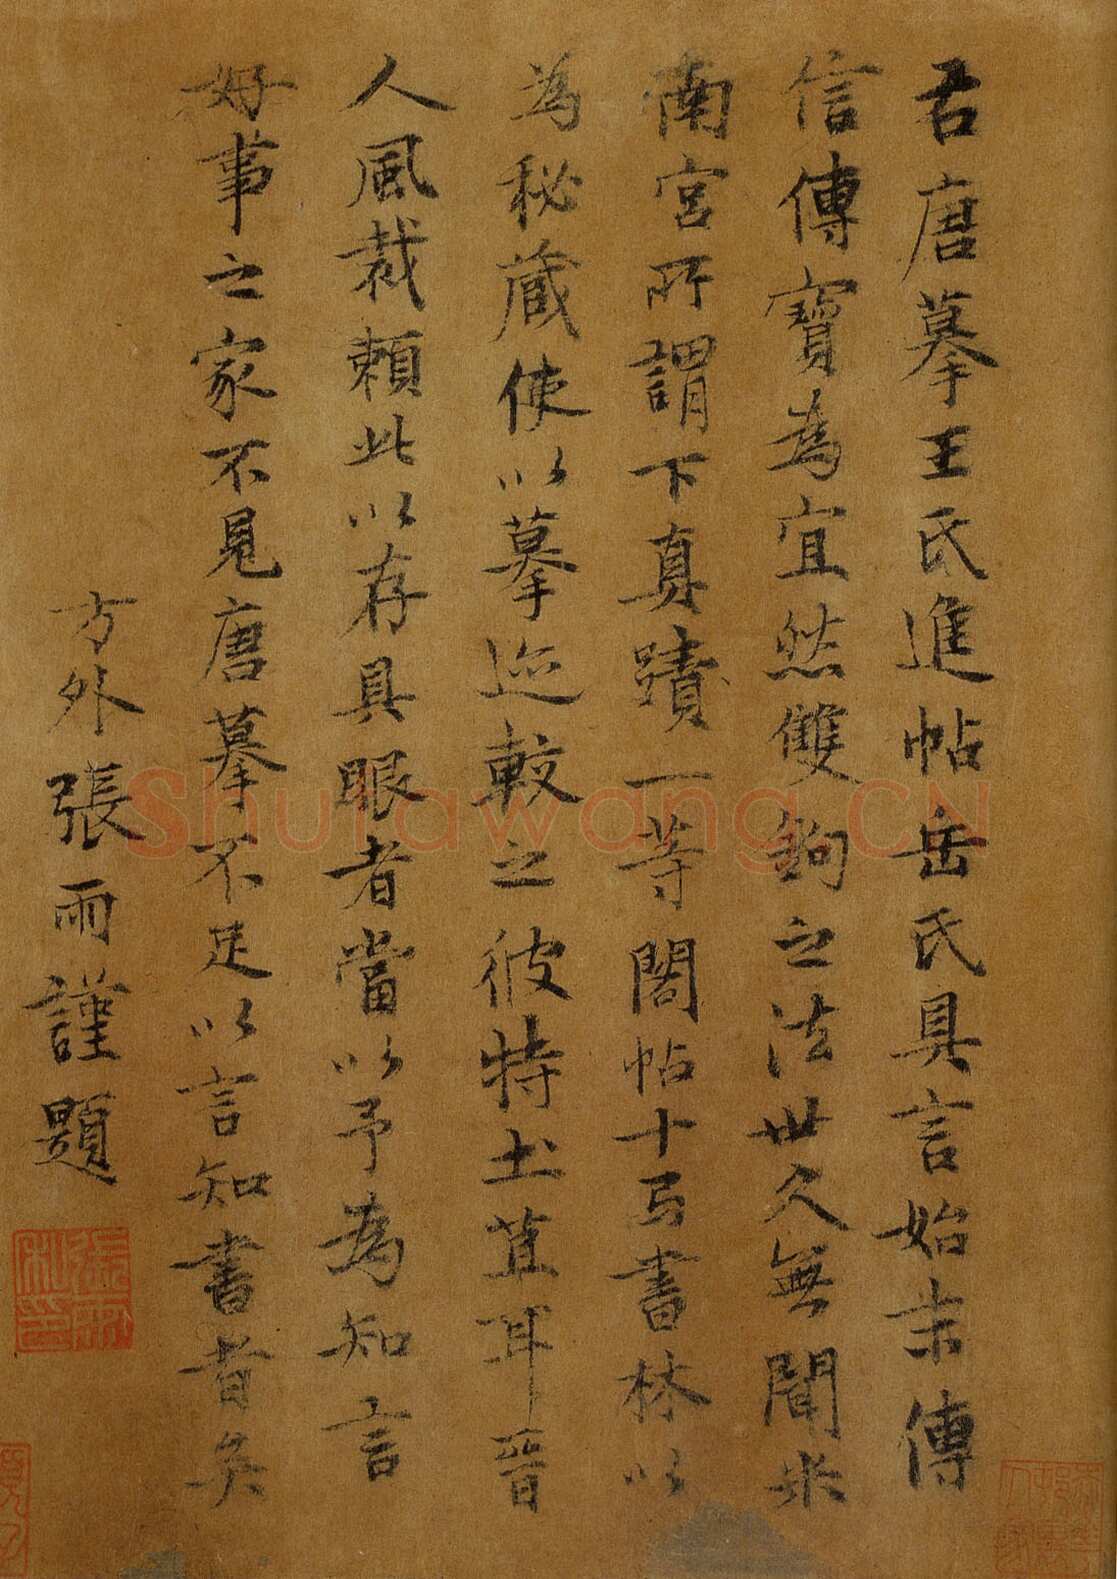 右唐摹王氏進帖岳氏具言始末傳
信傳寶為宜然雙鉤之法世久無聞米
南宮所謂下真蹟一等閣帖十弓書林以
為秘藏使以摹迹較之彼特土苴耳晉
人風裁賴此以存具眼者當以予為知言
好事之家不見唐摹不足以言知書者矣
方外張雨謹題
Shufawang.CN